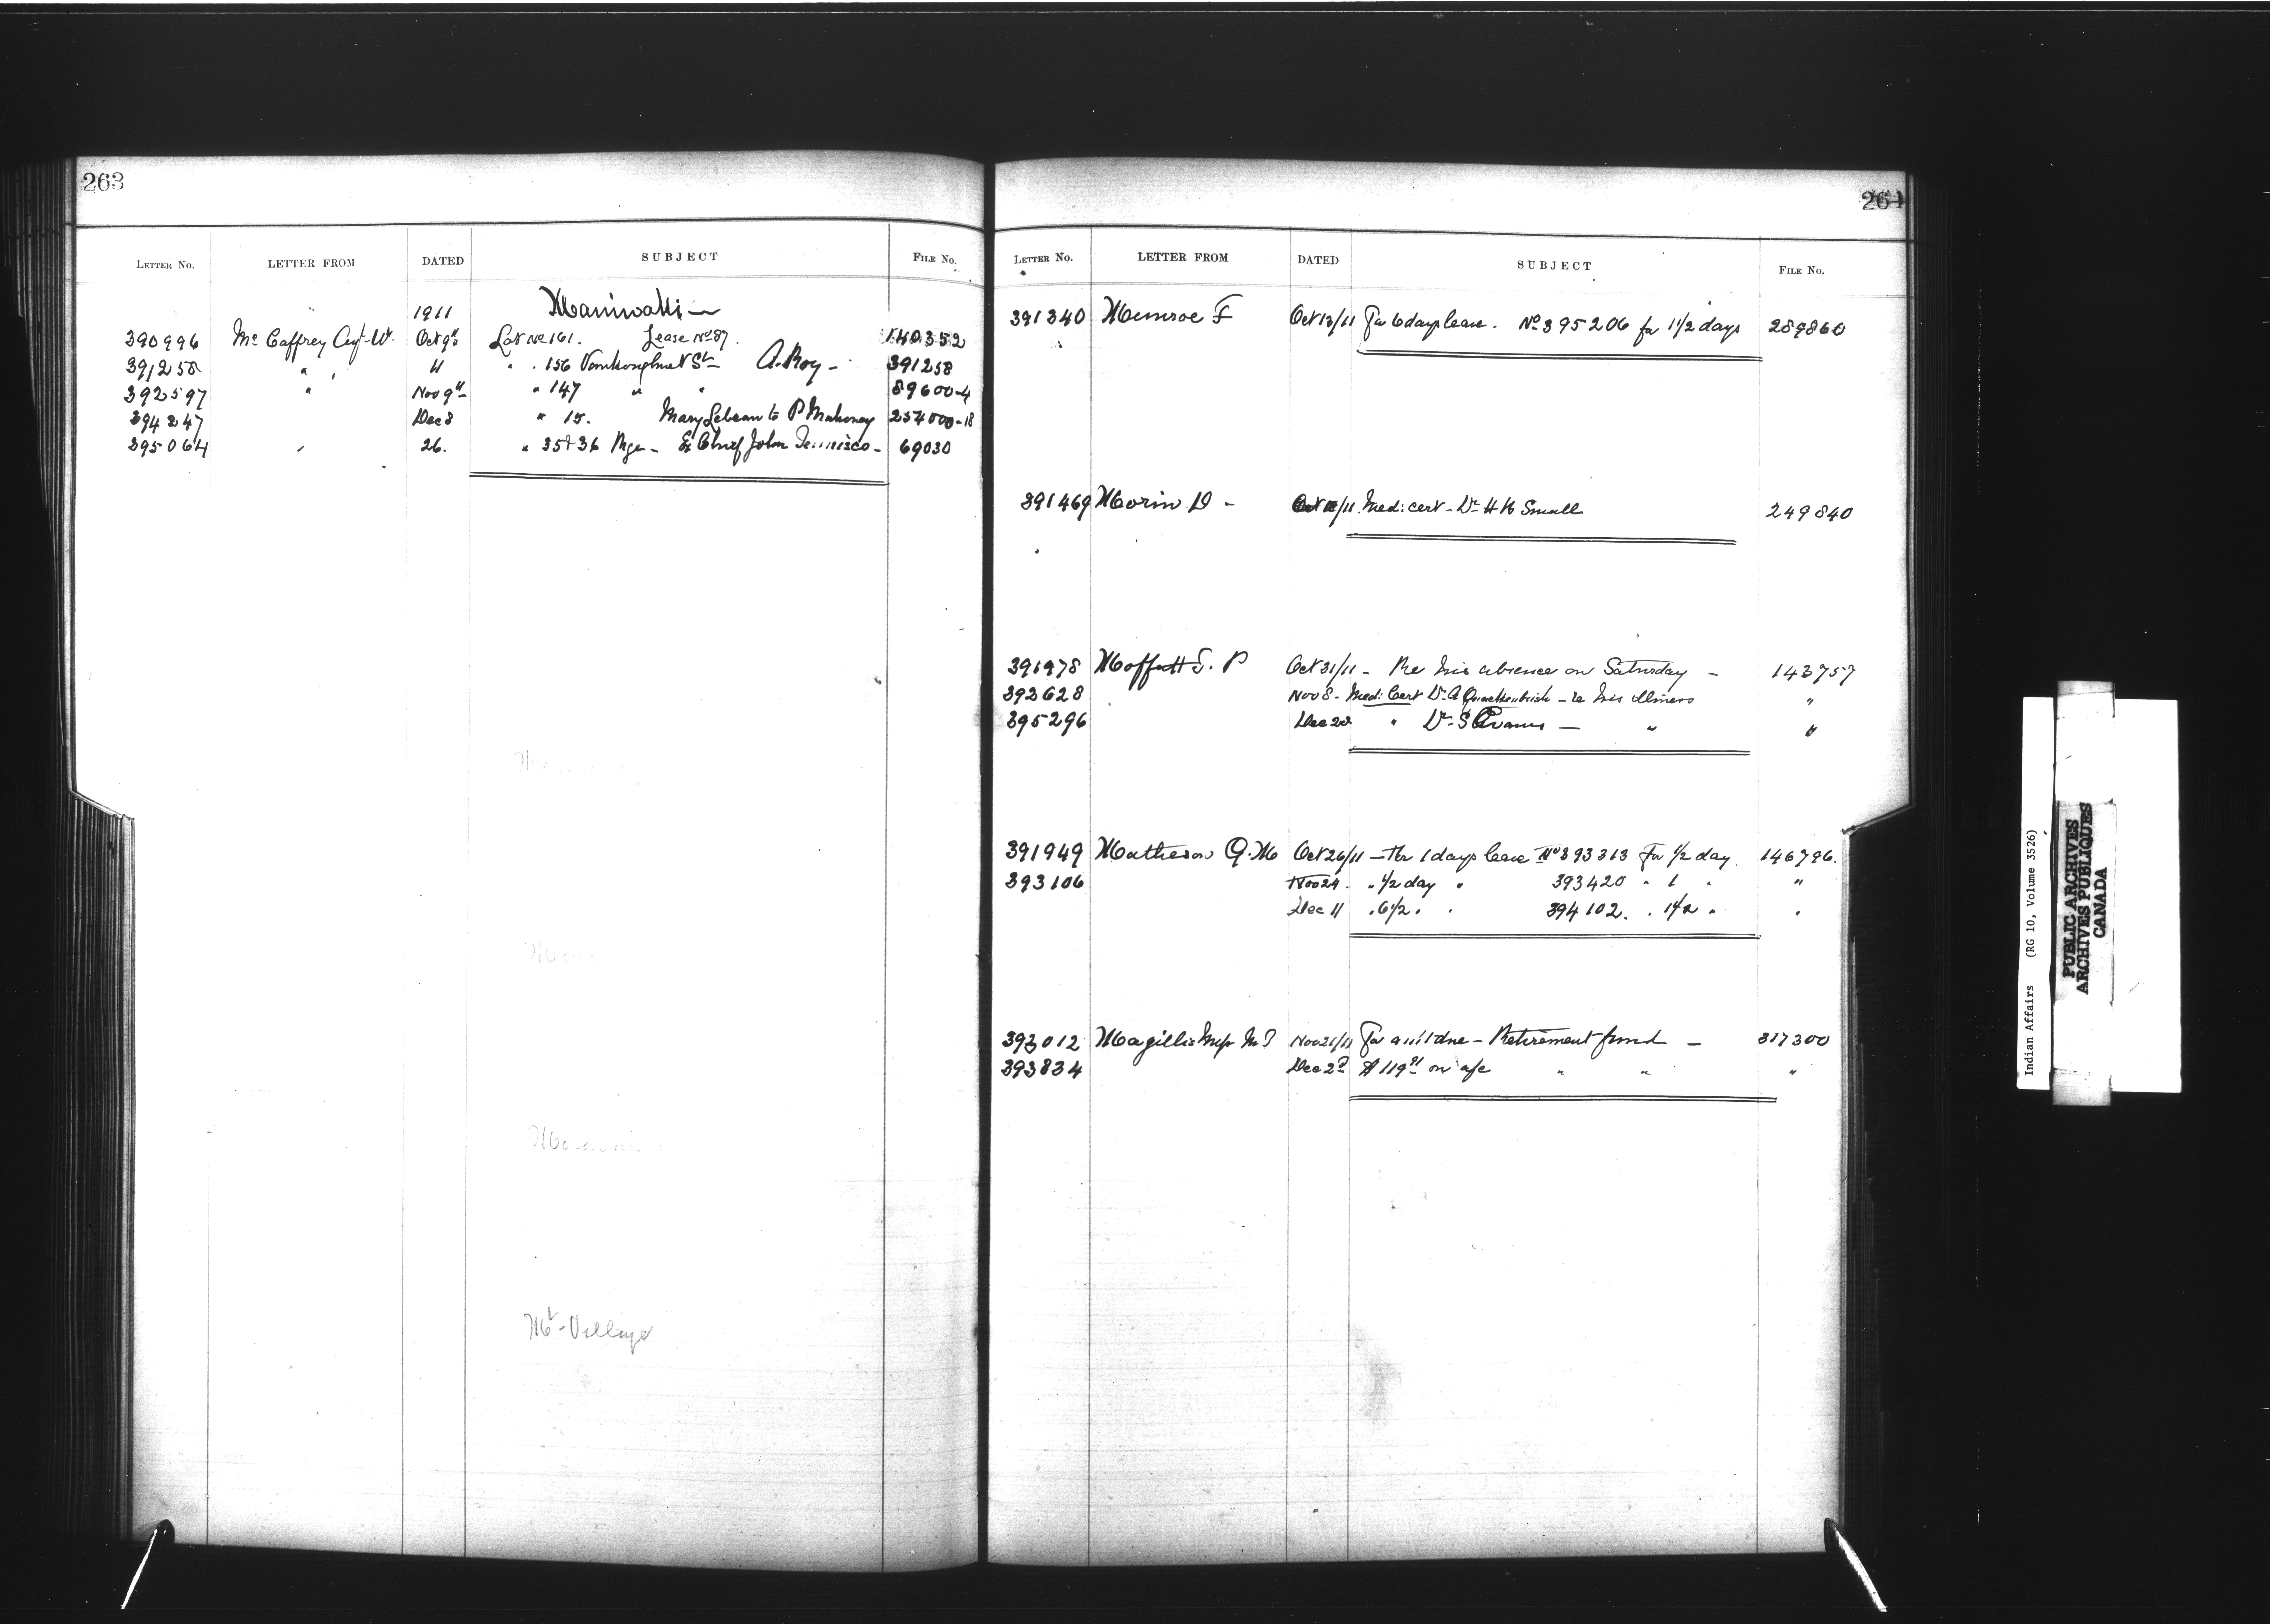 263
LETTER No. LETTER FROM DATED SUBJECT FILE No.
1911 Maniwaki
390996 McCaffrey Agt. W. Oct 9th Lot No 161. Lease No 87. 140352
391258 " " 11 " . 156 St A. Roy - 391258
392597 " Nov 9th " 147 " " 89600-4
394247 Dec 8 " 15. Mary Lebeau to P Mahoney 254000-18
395064 " 26. " 35 & 36 Ex Chief John Tennisco - 69030
Mt-Village
264
LETTER No. LETTER FROM DATED SUBJECT FILE No.
391340 Munroe F Oct 13/11 For 6 days leave. No 395206 for 1 1/2 days 289860
391469 Morin D - Oct /11. Med: cert - Dr H Small 249840
391978 Moffatt T. P Oct 31/11 - Re his absence on Saturday - 143757
392628 Nov 8 - Med: Cert Dr. A Quackenbush - re his illness "
395296 Dec " Dr. S Evans - " "
391949 Matheson G. M Oct 26/11 - For 1 days leave No 393313 For 1/2 day. 146796.
393106 Nov 24. " 1/2 day " 393420 " 1 " "
Dec 11 . 6 1/2 " . 394102. . 1 1/2 " "
393012 Magillis Nov 21/11 For am't due - Retirement fund - 317300
393834 Dec 2d $119 on a/c " " "
Indian Affairs (RG 10, Volume 3526)
PUBLIC ARCHIVES
ARCHIVES PUBLIQUES
CANADA